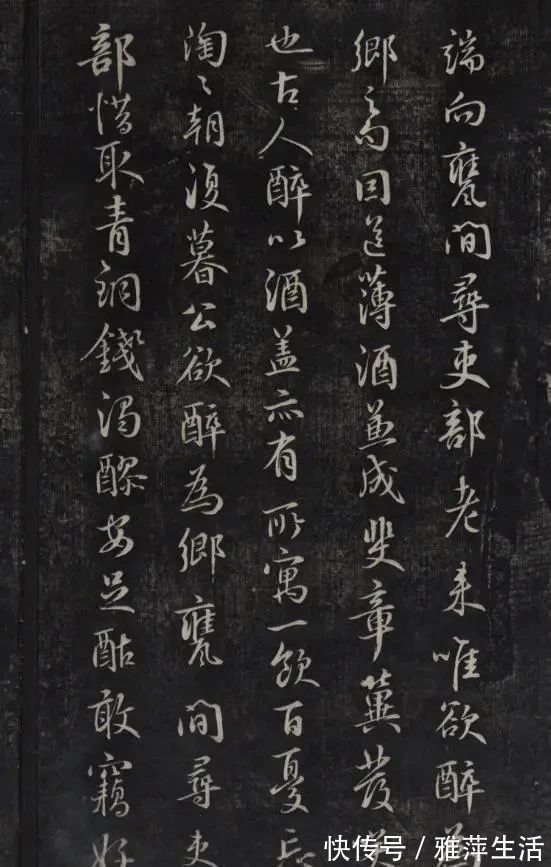 端向甕間尋吏部老来唯欲醉為
鄉之句回送薄酒并成斐章冀發
也古人醉以酒盖亦有所寓一飲百憂忘
淘々朝復暮公欲醉為鄉甕間尋吏
部惜取青銅錢濁醪安足酤敢竊好
快传号 / 雅萍生活